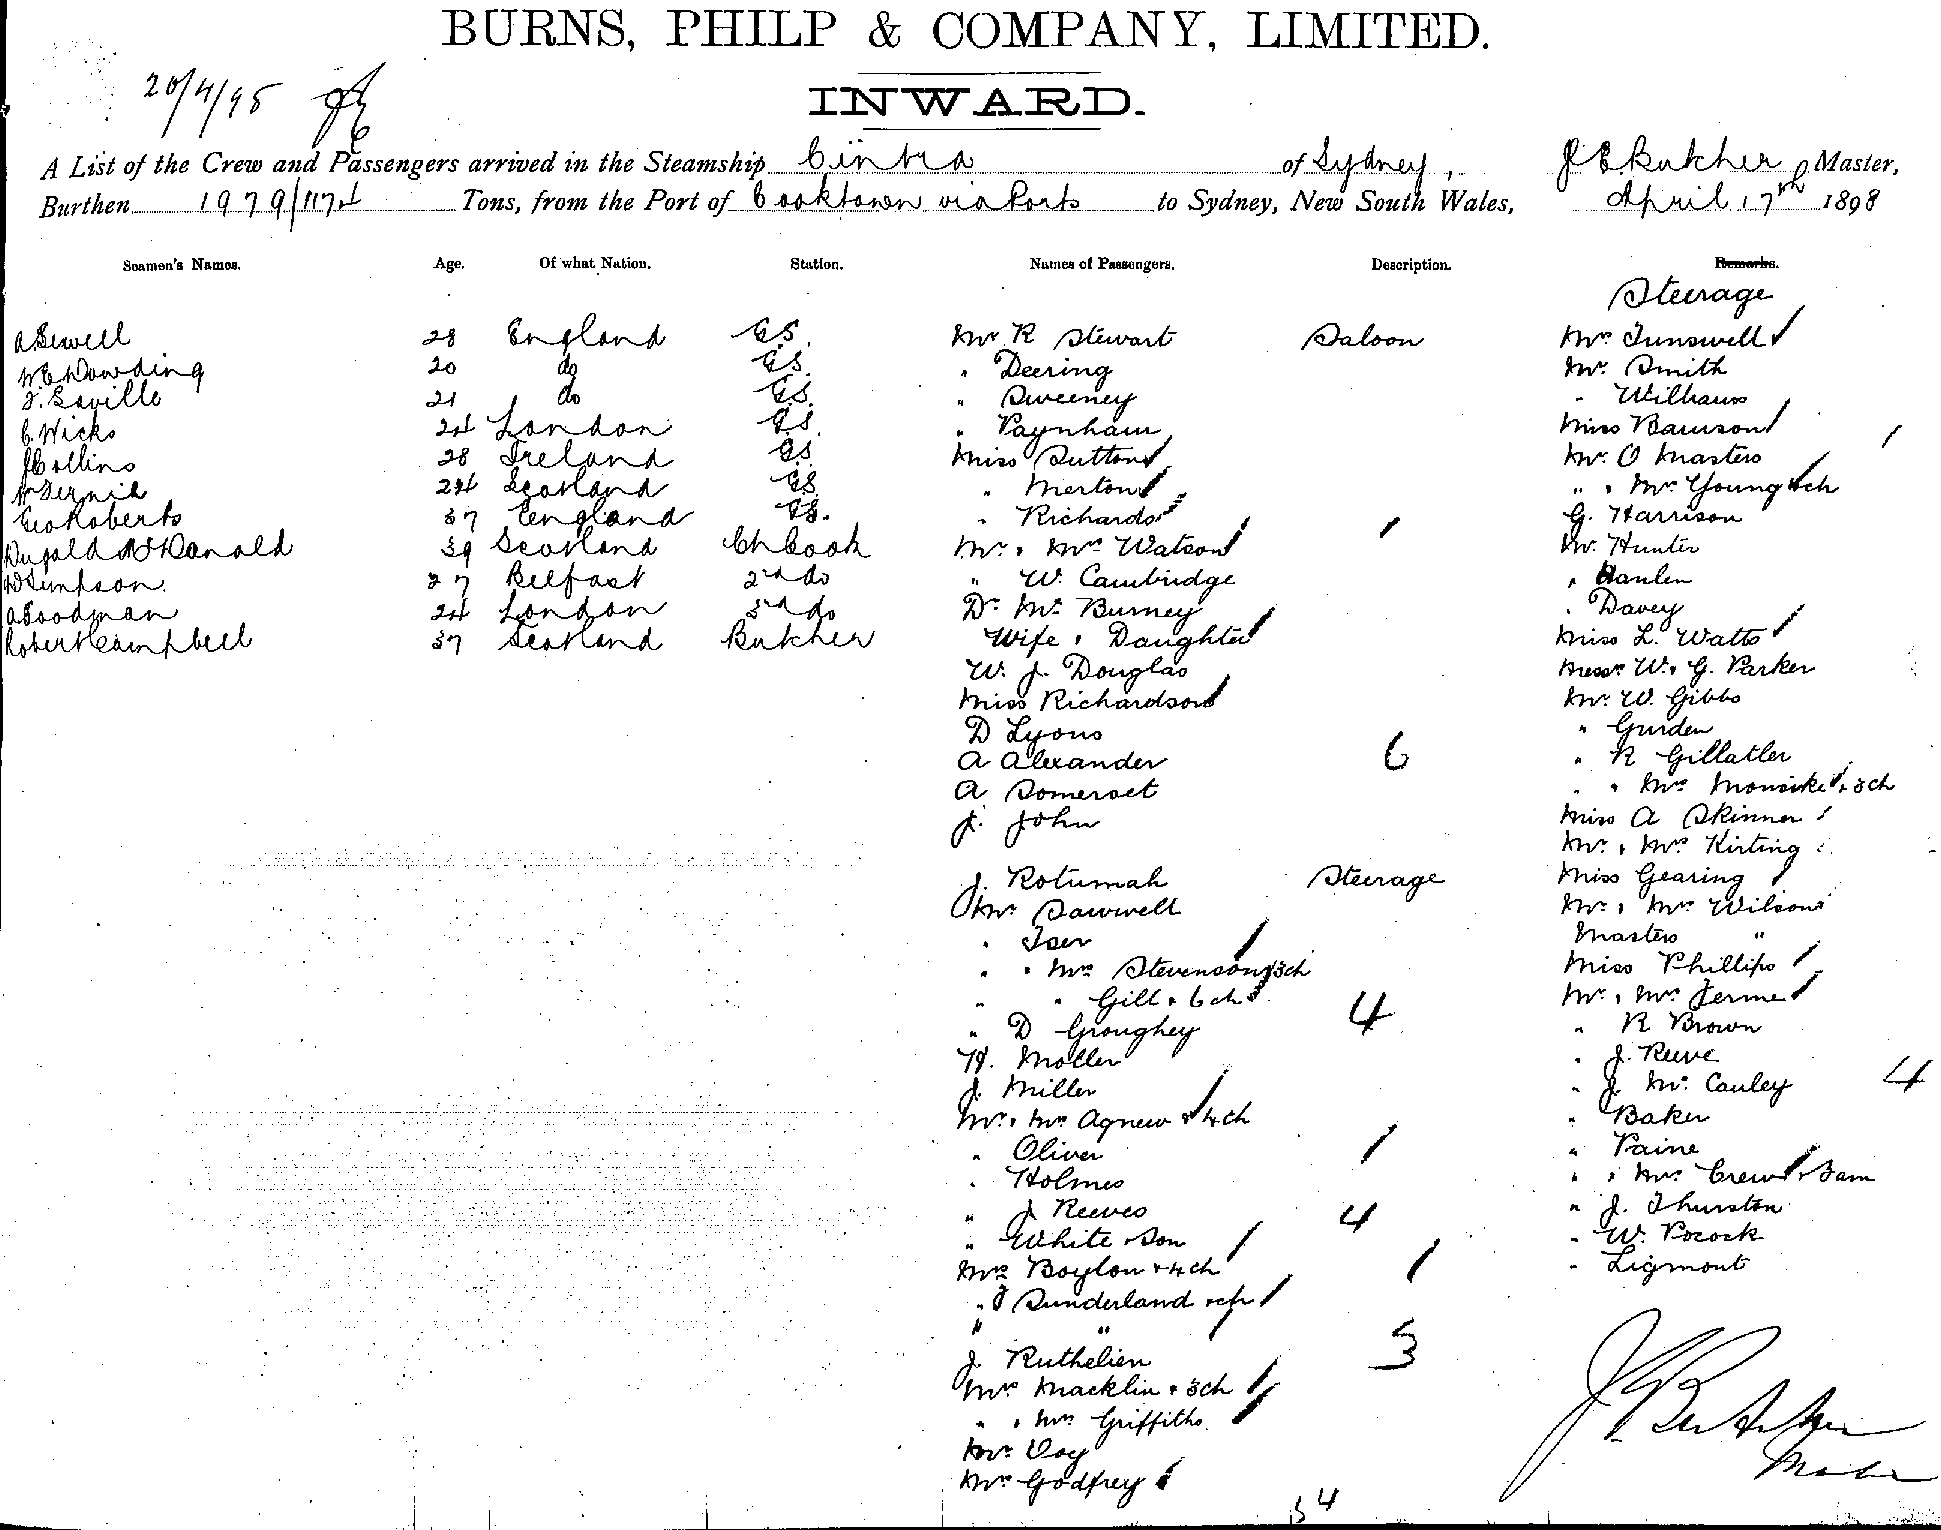 BURNS, PHILP & COMPANY, LIMITED.
20/4/98
INWARD.
A List of the Crew and Passengers arrived in the Steamship Cintra of Sydney, J E Butcher Master,
Burthen 1979/1174 Tons, from the Port of Cooktown via Ports to Sydney, New South Wales, April 17th 1898
Seamen's Names. Age. Of what Nation. Station. Names of Passengers. Description. Remarks.
Steerage
A Sewell 28 England G.S. Mr R Stewart Saloon Mrs Tunswell
W E Dowding 20 do G.S. " Deering Mr. Smith
F. Saville 21 do G.S. " Sweeney " Williams
C. Wicks 24 London G.S. " Paynham Miss Bamson
J Collins 28 Ireland G.S. Miss Sutton Mr. O Masters
24 Scotland G.S. " Merton " " Mrs Young & ch
Geo Roberts 37 England G.S. " Richards G. Harrison
Dugald McDonald 39 Scotland Ch Cook Mr. & Mrs Watson 1 Mr. Hunter
D Simpson 27 Belfast 2nd do " W. Cambridge " Hanlen
A Goodman 24 London 3rd do Dr. Mc Burney " Davey
Robert Campbell 37 Scotland Butcher Wife & Daughter Miss L. Watts
W. J. Douglas Messrs W. & G. Parker
Miss Richardson Mr. W. Gibbs
D Lyons " Gurden
A Alexander 6 " R Gillatler
A Somerset " & Mrs & 3 ch
J. John Miss A Skinner
Mr. & Mrs Kirting
J. Rotumah Steerage Miss Gearing
Mr Sawwell Mr. & Mrs Wilson
" Iser Masters "
" & Mrs Stevenson & 3 ch Miss Phillips
" " Gill & 6 ch 4 Mr. & Mrs Ferme
" D Groughey " R Brown
H. Moller " J. Reeve
J. Miller " J. Mc Cauley 4
Mr. & Mrs Agnew & 4 ch " Baker
" Oliver 1 " Paine
" Holmes " & Mrs Crew & Fam
" J Reeves 4 " J. Thurston
" White & Son " W. Pocock
Mrs Boylon & 4 ch 1 " Ligmont
" J Sunderland & ch
" "
J. Ruthelien 3
Mrs Macklin & 3 ch
" & Mrs Griffiths
Mr. Day
Mrs Godfrey
J E Butcher
Master
34